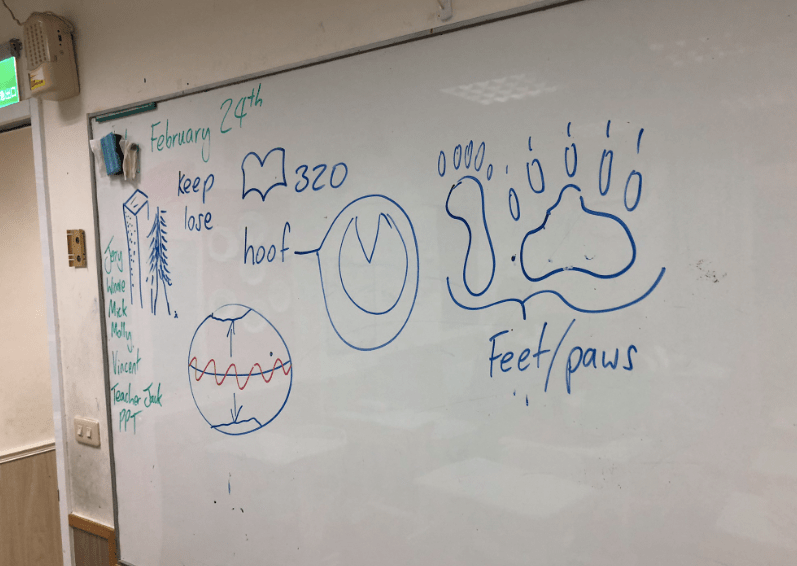 February 24th
keep
lose
320
hoof
Feet/paws
Jery
Winnie
Mick
Molly
Vincent
Teacher Jack
PPT